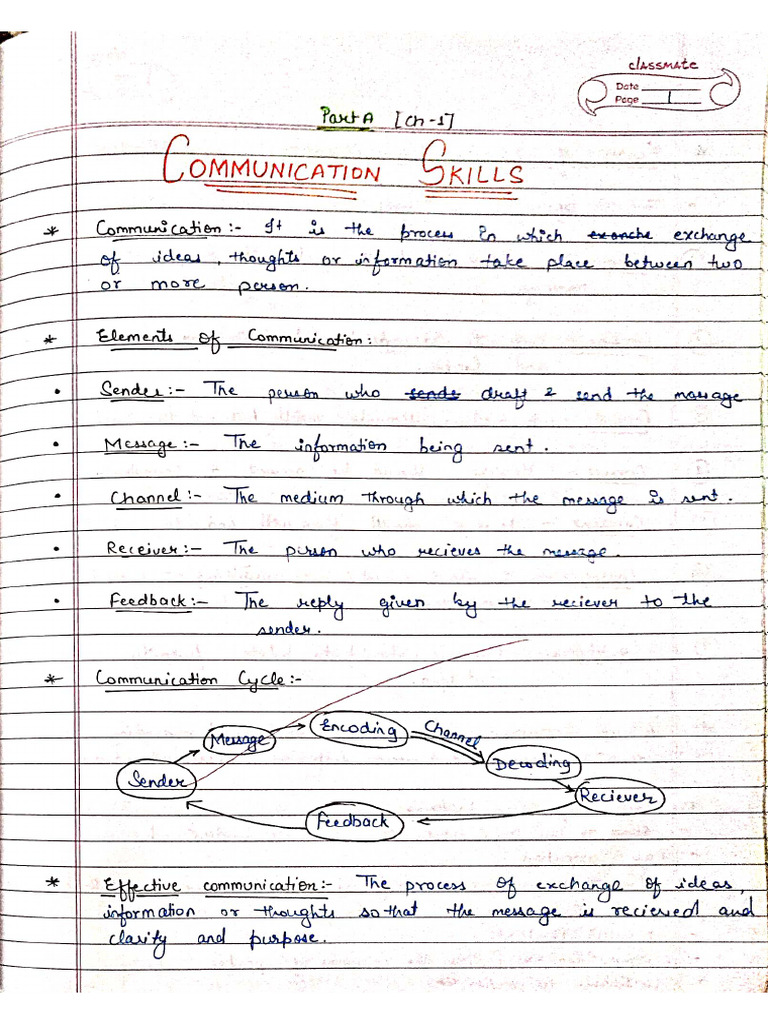 classmate
Date
Page 1
Part A [Ch-1]
COMMUNICATION SKILLS
* Communication:- It is the process in which exchange
of ideas, thoughts or information take place between two
or more person.
* Elements of Communication:
• Sender:- The person who sends draft & send the massage
• Message:- The information being sent.
• Channel:- The medium through which the message is sent.
• Receiver:- The person who recieves the message.
• Feedback:- The reply given by the reciever to the
sender.
* Communication Cycle:-
Encoding
Channel
Message
Decoding
Sender
Reciever
Feedback
* Effective communication:- The process of exchange of ideas,
information or thoughts so that the message is recieved and
clarify and purpose.